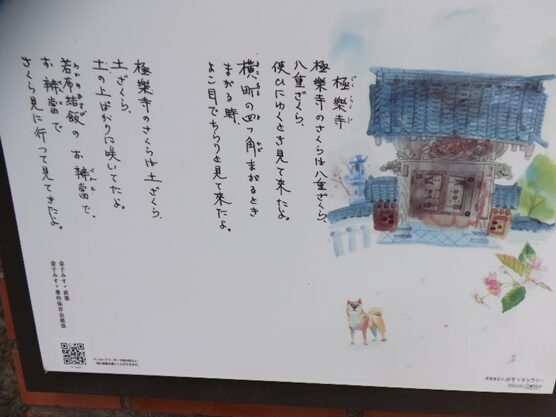 極樂寺
極樂寺のさくらは八重ざくら、
八重ざくら、
使ひにゆくとき見て來たよ。
横町の四つ角まがるとき
まがる時、
よこ目でちらりと見て來たよ。
極樂寺のさくらは土ざくら、
土ざくら、
土の上ばかりに咲いてたよ。
若布結飯のお辨當で、
お辨當で
さくら見に行つて見てきたよ。
金子みすゞ直筆
金子みすゞ著作保存会提供